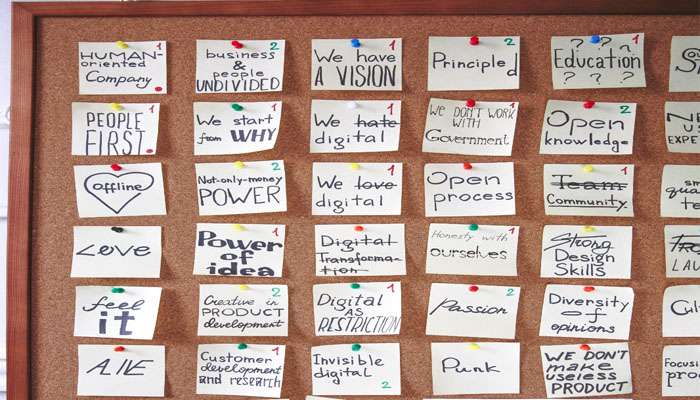 HUMAN-
oriented
Company
1
business
&
people
UNDIVIDED
2
We have
A VISION
1
Principled
2
Education
? ? ?
? ? ? ?
1
PEOPLE
FIRST
1
We start
from WHY
1
We hate
digital
1
We DON'T WORK
WITH
Government
1
Open
knowledge
2
offline
Not-only-money
POWER
2
We love
digital
1
Open
process
1
Team
Community
1
LOVE
Power
of
idea
1
Digital
Transforma-
tion
Honesty with
ourselves
1
Strong
Design
Skills
feel
it
Creative in
PRODUCT
development
2
Digital
AS
RESTRICTION
1
Passion
2
Diversity
of
opinions
ALIVE
Customer
development
and research
1
Invisible
digital
2
Punk
WE DON'T
make
useless
PRODUCT